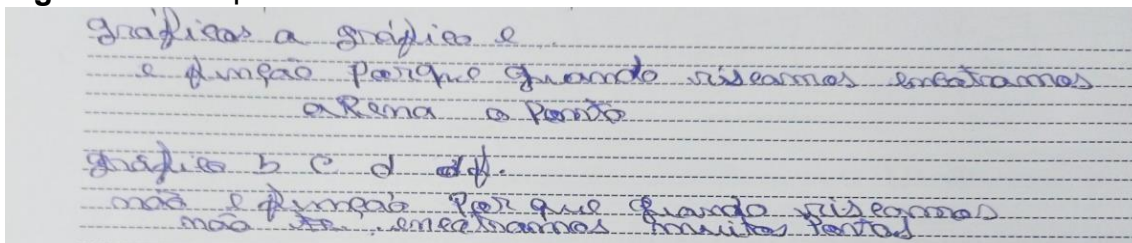 graficos a gráfico e
e função porque quando riscamos encotramos
apena o Ponto
gráfico b c d f.
não e função Por que quando riscamos
não encotramos muitos Pontos